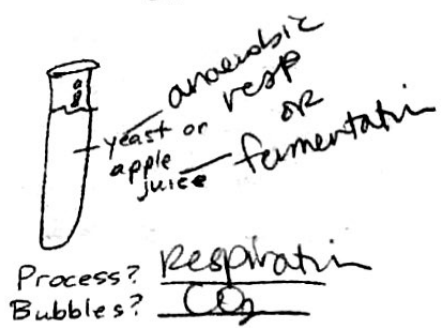 anaerobic
resp
or
fermentatin
yeast or
apple
juice
Process? Respiratin
Bubbles? CO2